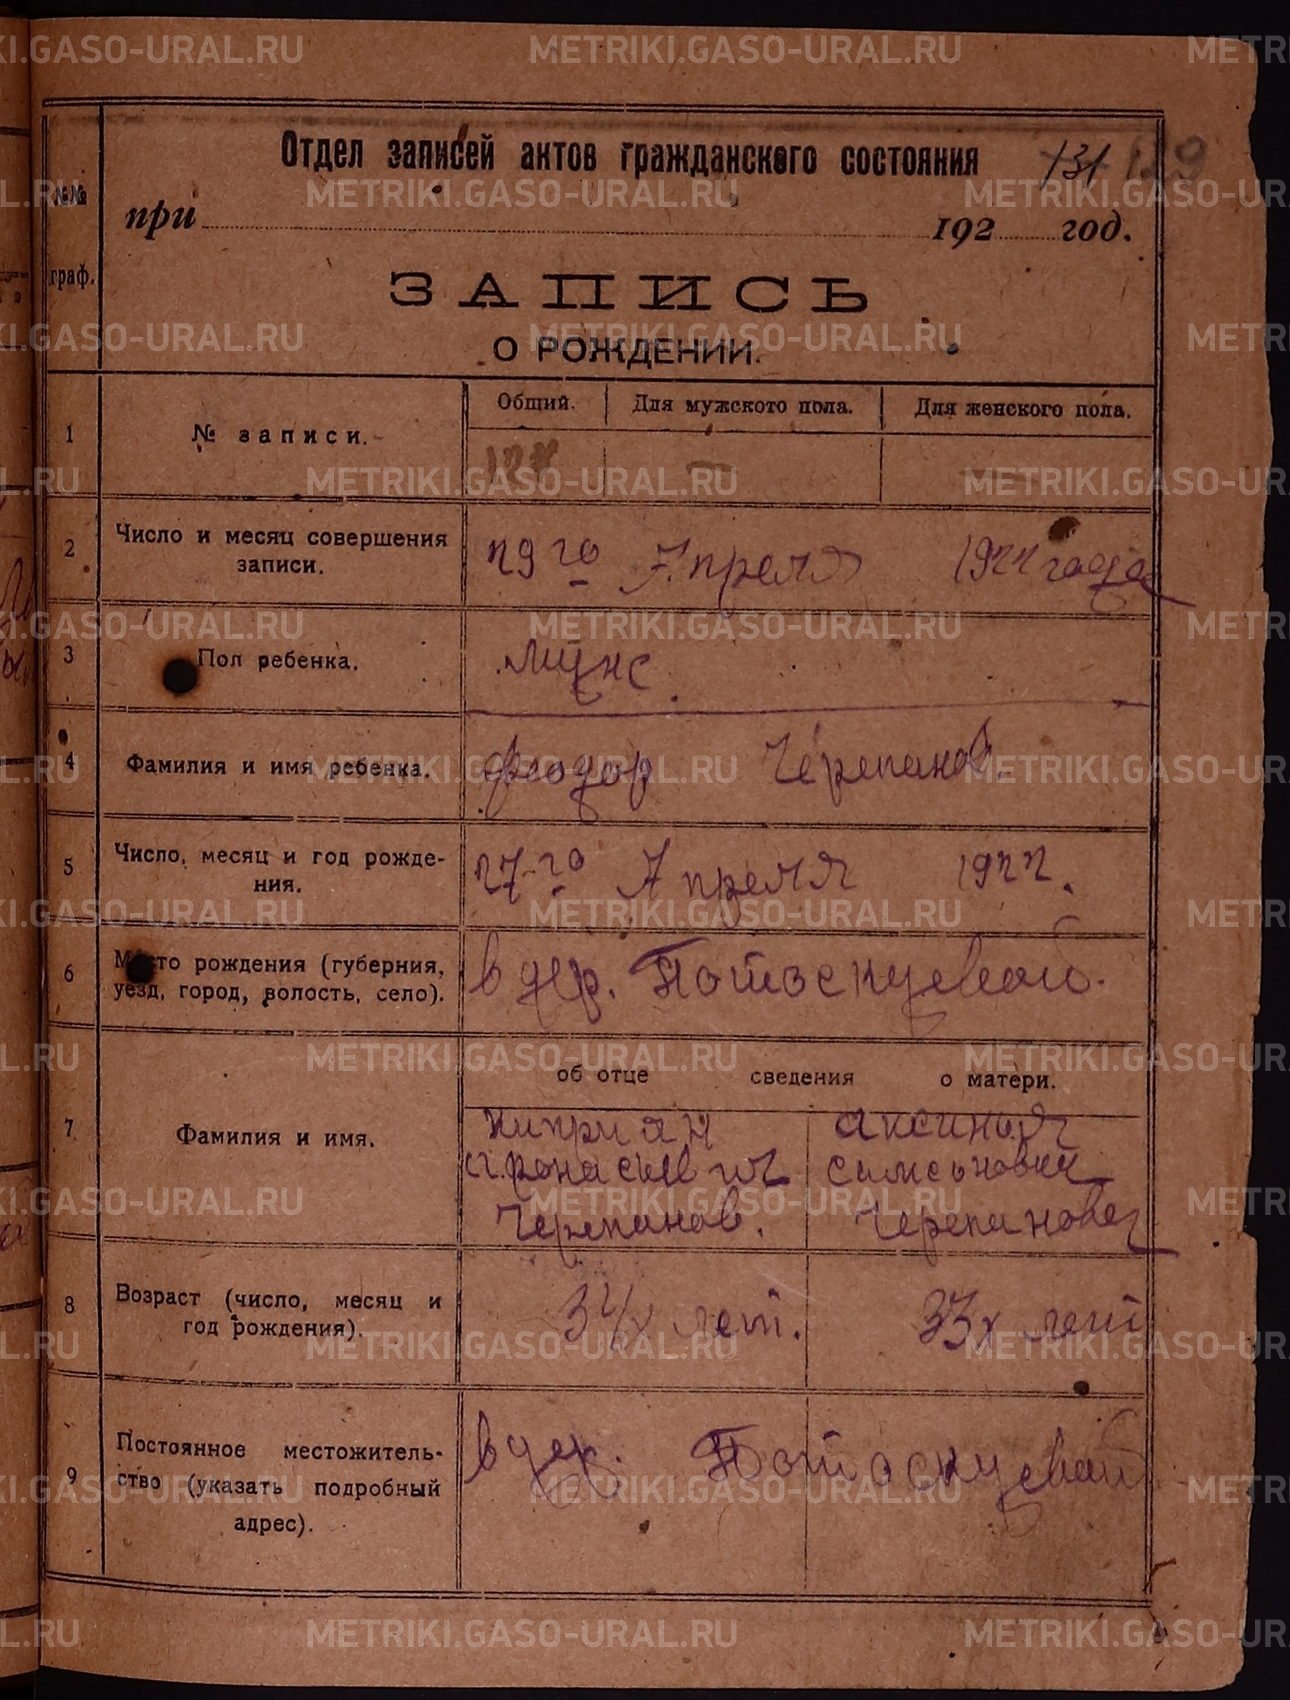 Отдел записей актов гражданского состояния
131 129
№№ граф.
при 192 год.
ЗАПИСЬ
О РОЖДЕНИИ.
1 № записи. Общий. Для мужского пола. Для женского пола.
2 Число и месяц совершения записи. 29 го Апреля 1922 года
3 Пол ребенка. муж
4 Фамилия и имя ребенка. Феодор Черепанов.
5 Число, месяц и год рождения. 27-го Апреля 1922.
6 Место рождения (губерния, уезд, город, волость, село). в дер. Потоскуевой.
об отце сведения о матери.
7 Фамилия и имя.
Киприян Аксинья
Черепанов. Черепанова
8 Возраст (число, месяц и год рождения). 34х лет. 33х лет
9 Постоянное местожительство (указать подробный адрес). в дер. Потоскуевой
METRIKI.GASO-URAL.RU